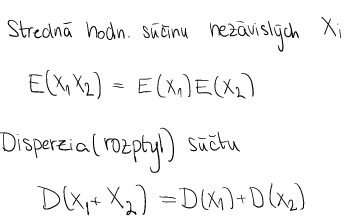 Stredná hodn. súčinu nezávislých Xi
E(X₁X₂) = E(X₁)E(X₂)
Disperzia(rozptyl) súčtu
D(X₁+X₂) = D(X₁)+D(X₂)